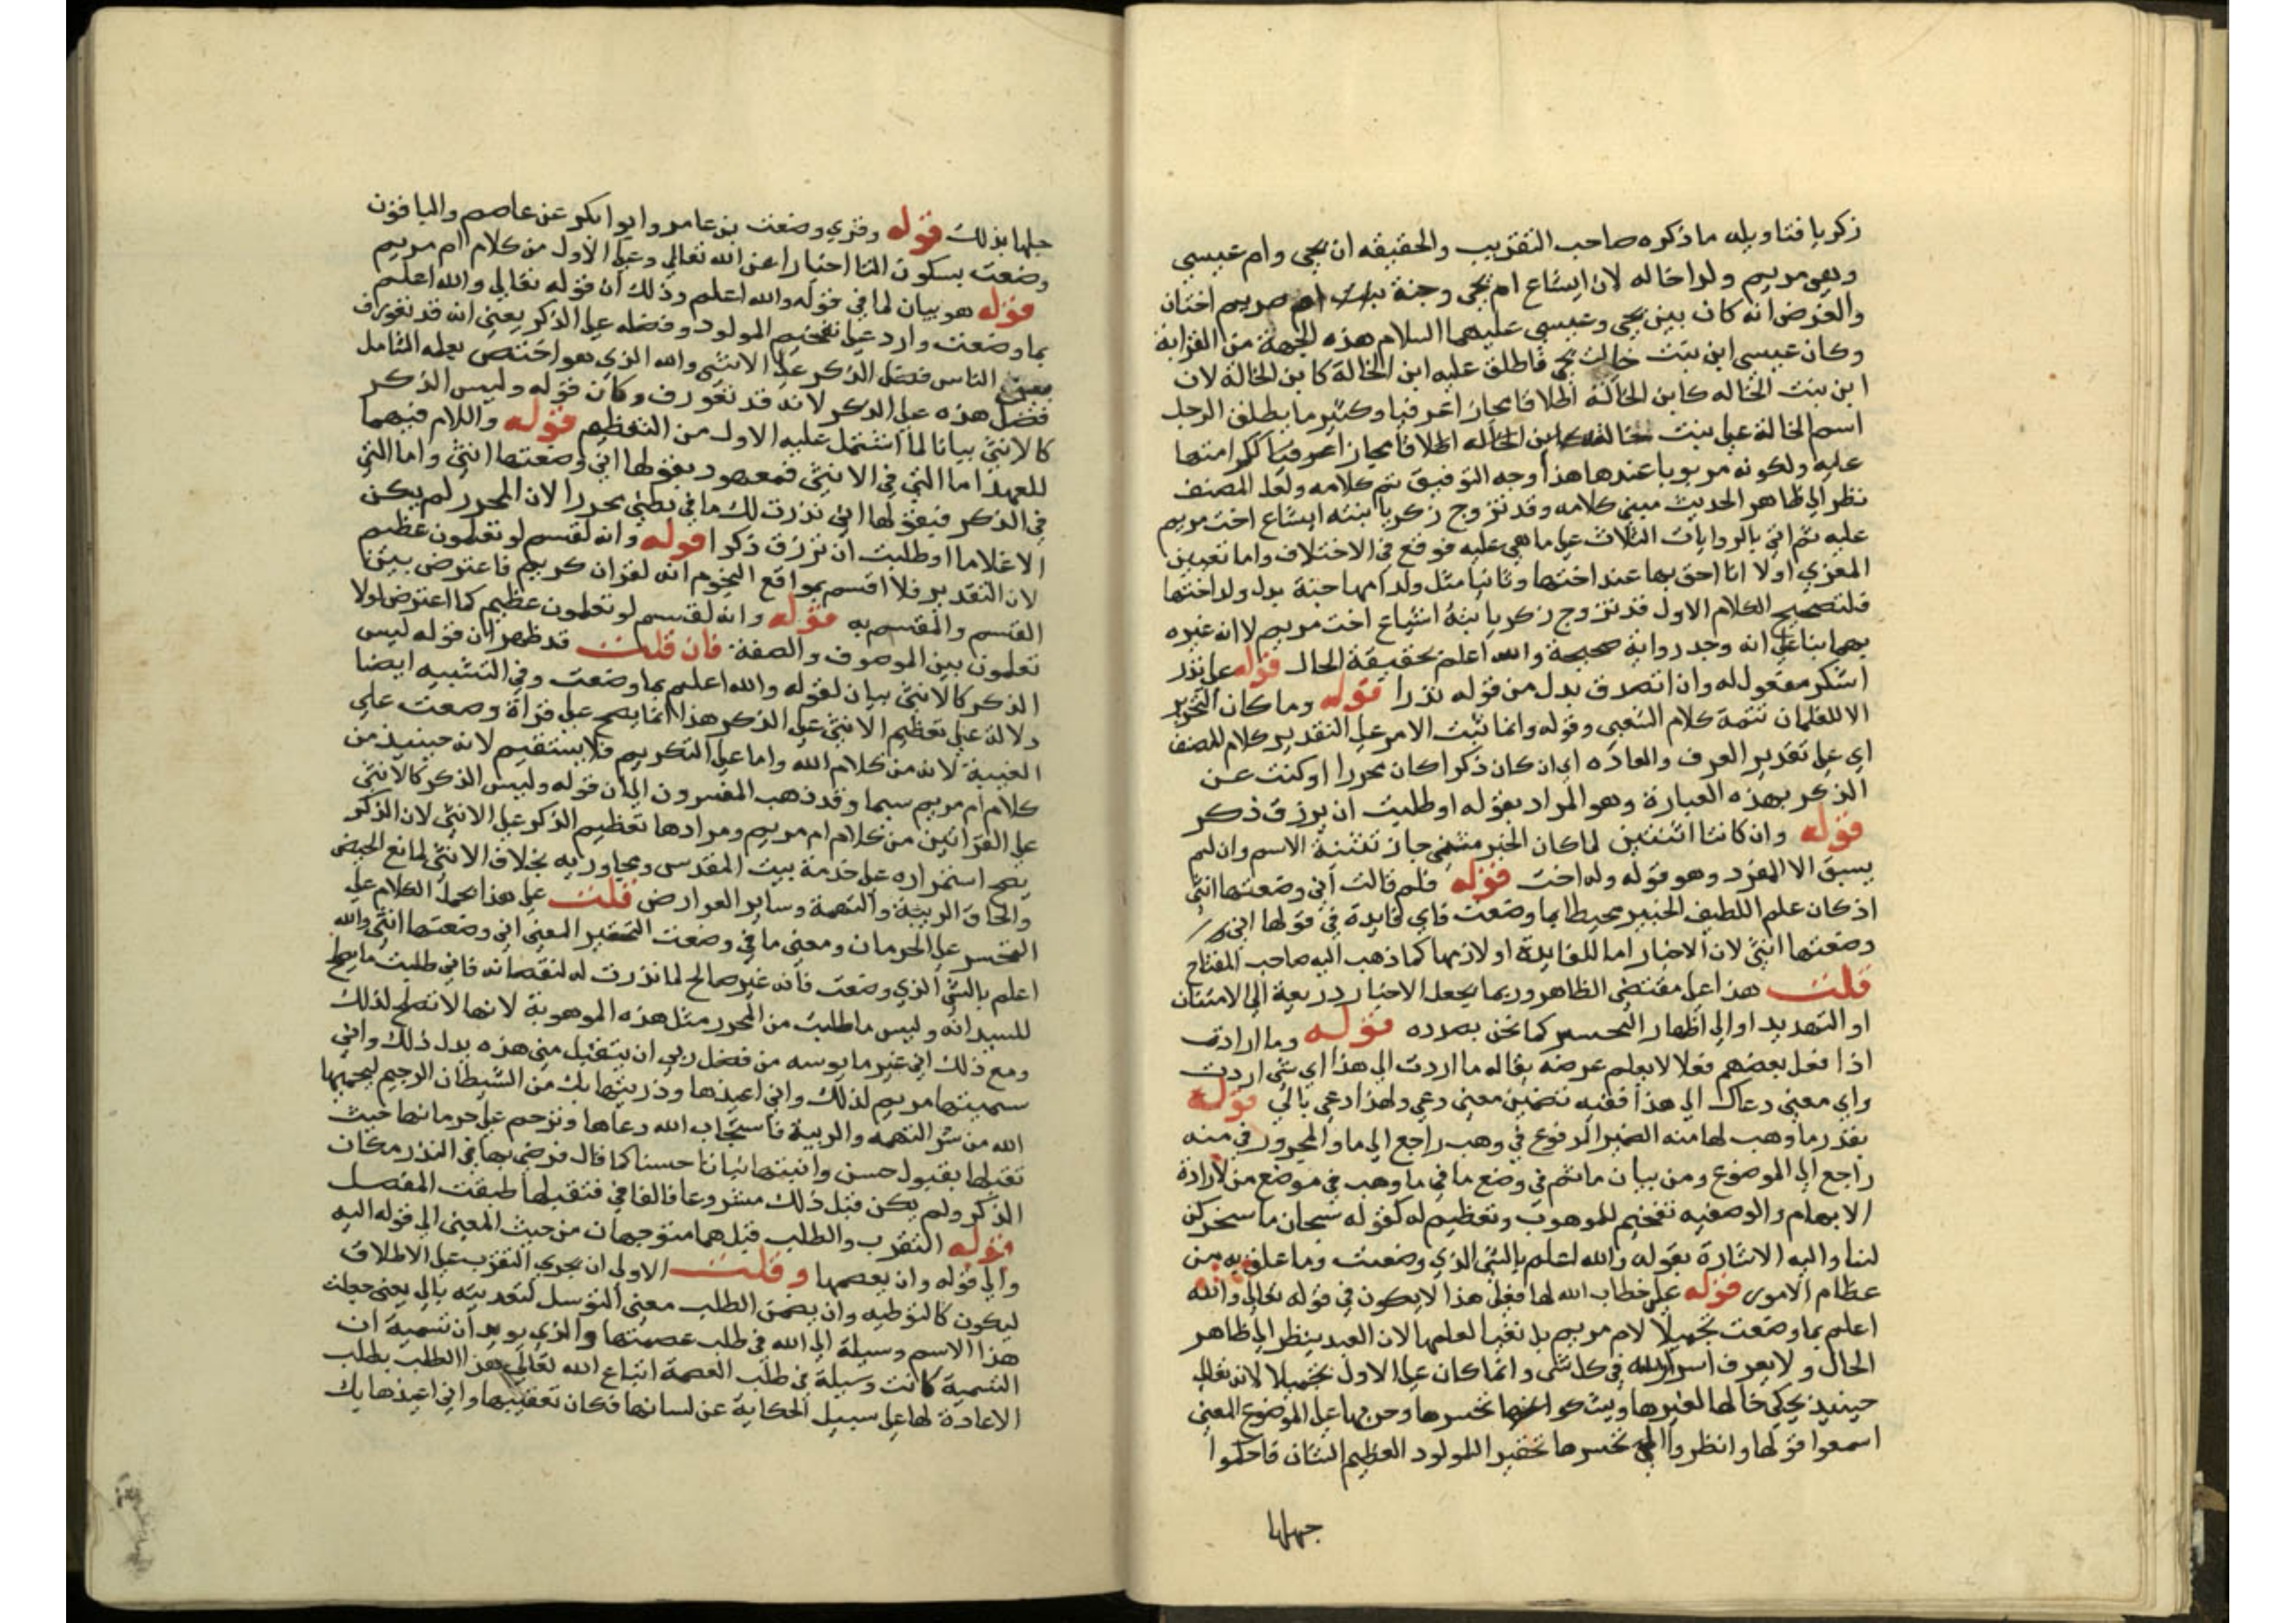 زكريا فتاويله ما ذكره صاحب التقريب والحقيقه ان يحيى وام عيسى
وهي مريم ولدا خاله لان ايشاع ام يحيى وحنة ام مريم اختان
والغرض انه كان بين يحيى وعيسى عليهما السلام هذه الجهة من القرابة
وكان عيسى ابن بنت خالة يحيى فاطلق عليه ابن الخالة كابن الخالة لان
ابن بنت الخاله كابن الخالة اطلاقا مجازا عرفيا وكثير ما يطلق الرجل
اسم الخالة على بنت خالته اطلاقا مجازا عرفيا لكرامتها
عليه ولكونه مربوبا عندها هذا وجه التوفيق تم كلامه ولعل المصنف
نظر الى ظاهر الحديث مبني كلامه وقد تزوج زكريا ابنته ايشاع اخت مريم
عليه ثم اتى بالروايات الثلاث على ما هي عليه فوقع في الاختلاف واما تعيين
المعزي اولا انا احق بها عندي اختها وثانيا مثل ولد امها حنة بدل ولد اختها
قلت تصحيح الكلام الاول قد تزوج زكريا بنته اشياع اخت مريم لا انه غيره
بهما بنا على انه وجد رواية صحيحة والله اعلم بحقيقة الحال قوله على نذر
اشكر مفعول له وان اتصدق بدل من قوله نذرا قوله وما كان التحرير
الا للغلمان تتمة كلام الشعبي وقوله وانما ثبت الامر على التقدير كلام المصنف
اي على تقدير العرف والعاده اي ان كان ذكرا كان محررا او كنت عن
الذكر بهذه العبارة وهو المراد بقوله او طلبت ان يرزق ذكر
قوله وان كانتا اثنتين لما كان الخبر مثنى جاز تثنية الاسم وان لم
يسبق الا المفرد وهو قوله وله اخت قوله فلم قالت اني وضعتها انثى
اذ كان علم اللطيف الخبير محيطا بما وضعت فاي فايدة في قولها اني
وضعتها انثى لان الاخبار اما للفايدة او لازمها كما ذهب اليه صاحب المفتاح
قلت هذا على مقتضى الظاهر وربما يجعل الاخبار ذريعة الى الامتنان
او التهديد او الى اظهار التحسر كما نحن بصدده قوله وما ارادت
اذا فعل بعضهم فعلا لا يعلم غرضه يقال له ما اردت الى هذا اي شي اردت
واي معنى دعاك الى هذا ففيه تضمين معنى دعي ولهذا دعي بالي قوله
بقدر ما وهب لها منه الضمير المرفوع في وهب راجع الى ما والمجرور في منه
راجع الى الموضوع ومن بيان ما ثم في وضع ما في ما وهب في موضع من لارادة
الابهام والوصفيه تفخيم للموهوب وتعظيم له كقوله سبحان ما سخركن
لنا واليه الاشارة بقوله والله اعلم بالشي الذي وضعت وما علق به من
عظام الامور قوله على خطاب الله لها فعلى هذا لا يكون في قوله تعالى والله
اعلم بما وضعت تجهيلا لام مريم بل نفيا لعلمها لان العبد ينظر الى ظاهر
الحال ولا يعرف اسرار الله في كل شي وانما كان على الاول تجهيلا لانه تعالى
حينيذ يحكي حالها لغيرها ويشكو تحسرها وحزنها على الموضوع المعني
اسمعوا قولها وانظروا الى تحسرها تحقيرا للمولود العظيم الشان فاحكموا
جهلها
جهلها بذلك قوله وقري وضعت بن عامر وابوا بكر عن عاصم والباقون
وضعت بسكون التا اخبارا عن الله تعالى وعلى الاول من كلام ام مريم
قوله هو بيان لما في قوله والله اعلم وذلك ان قوله تعالى والله اعلم
بما وضعت وارد على تفخيم المولود وفضله على الذكر يعني انه قد تعورف
الناس فضل الذكر على الانثى والله الذي هو اختص بعلم الشامل
فضل هذه على الذكر لانه قد تعورف وكان قوله وليس الذكر
كالانثى بيانا لما اشتمل عليه الاول من التعظيم قوله واللام فيهما
للعهد اما التي في الانثى فمعهود بقولها اني وضعتها انثى واما التي
في الذكر فبقولها اني نذرت لك ما في بطني محررا لان المحرر لم يكن
الا غلاما او طلبت ان ترزق ذكرا قوله وانه لقسم لو تعلمون عظيم
لان التقدير فلا اقسم بمواقع النجوم انه لقران كريم فاعترض بين
القسم والمقسم به قوله وانه لقسم لو تعلمون عظيم كما اعترض لولا
تعلمون بين الموصوف والصفة فان قلت قد ظهر ان قوله ليس
الذكر كالانثى بيان لقوله والله اعلم بما وضعت وفي التشبيه ايضا
دلالة على تعظيم الانثى على الذكر هذا انما يصح على قراة وضعت على
الغيبة لانه من كلام الله واما على التكريم فلا يستقيم لانه حينيذ من
كلام ام مريم سيما وقد ذهب المفسرون الى ان قوله وليس الذكر كالانثى
على القراتين من كلام ام مريم ومرادها تعظيم الذكر على الانثى لان الذكر
يصح استمراره على خدمة بيت المقدس ومجاوريه بخلاف الانثى لمانع الحيض
والحاق الريبة والتهمة وساير العوارض قلت على هذا يحمل الكلام على
التحسر على الحرمان ومعنى ما في وضعت التحقير المعني اني وضعتها انثى والله
اعلم بالشي الذي وضعت فانه غير صالح لما نذرت له لنقصانه فاني طلبت ما يصلح
للسدانه وليس ما طلبت من المحرر مثل هذه الموهوبة لانها لا تصلح لذلك
ومع ذلك اني غير مايوسه من فضل ربي ان يتقبل مني هذه بدل ذلك واني
سميتها مريم لذلك واني اعيذها وذريتها بك من الشيطان الرجيم ليحميها
الله من شر التهمه والريبة فاستجاب الله دعاها وترحم على حرمانها حيث
تقبلها بقبول حسن وانبتها نباتا حسنا كما قال فرضي بها في النذر مكان
الذكر ولم يكن قبل ذلك مشروعا فالفا في فتقبلها طبقت المفصل
قوله التقرب والطلب قيل هما متوجهان من حيث المعنى الى قوله اليه
والى قوله وان يعصمها وقلت الاولى ان يجري التقرب على الاطلاق
ليكون كالتوطيه وان يضمن الطلب معنى التوسل لتعديته بالى يعني جعلت
هذا الاسم وسيلة الى الله في طلب عصمتها والذي يويد ان تسمية ان
التسمية كانت وسيلة في طلب العصمة اتباع الله تعالى هذا الطلب بطلب
الاعاذة لها على سبيل الحكاية عن لسانها فكان تعقيبها واني اعيذها بك